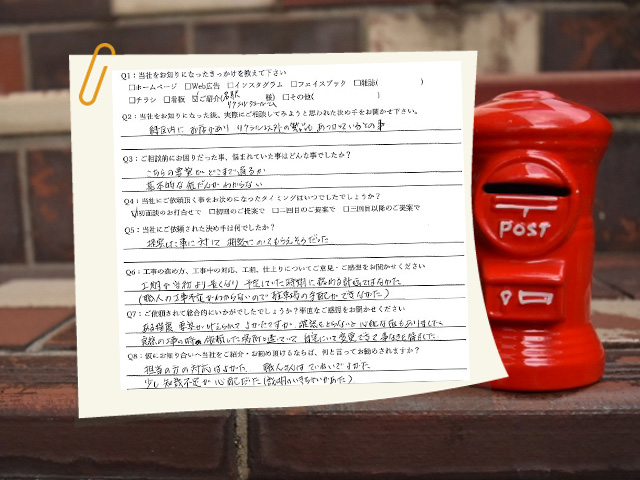 Q1：当社をお知りになったきっかけを教えて下さい
□ホームページ □Web広告 □インスタグラム □フェイスブック □雑誌( )
□チラシ □看板 ☑ご紹介( 様) □その他( )
Q2：当社をお知りになった後、実際にご相談してみようと思われた決め手をお聞かせ下さい。
緑区内に お店があり リクシル以外の製品も あつかっているとの事
Q3：ご相談前にお困りだった事、悩まれていた事はどんな事でしたか？
こちらの要望が、どこまで通るか
基本的な値だんがわからない
Q4：当社にご依頼頂く事をお決めになったタイミングはいつでしたでしょうか？
☑初面談のお打合せで □初回のご提案で □二回目のご提案で □三回目以降のご提案で
Q5：当社にご依頼された決め手は何でしたか？
に対して 相談にのってもらえそうだった
Q6：工事の進め方、工事中の対応、工期、仕上りについてご意見・ご感想をお聞かせください
工期が当初より長くなり 予定していた時期に
(職人の工事予定がわからないので 駐車場の手配ができなかた)
Q7：ご依頼されて総合的にいかがでしたでしょうか？率直なご感想をお聞かせください
ある程度 要望が かなえられて よかたですが 確認をとらないと 心配な 点もありました
の工事の時 依頼した場所と違っていて
Q8：仮にお知り合いへ当社をご紹介・お勧め頂けるならば、何と言ってお勧めされますか？
担当の方の対応はよかた。 職人さんは ていねいでよかた
少し 知識不足が 心配だった (説明の あた)
POST